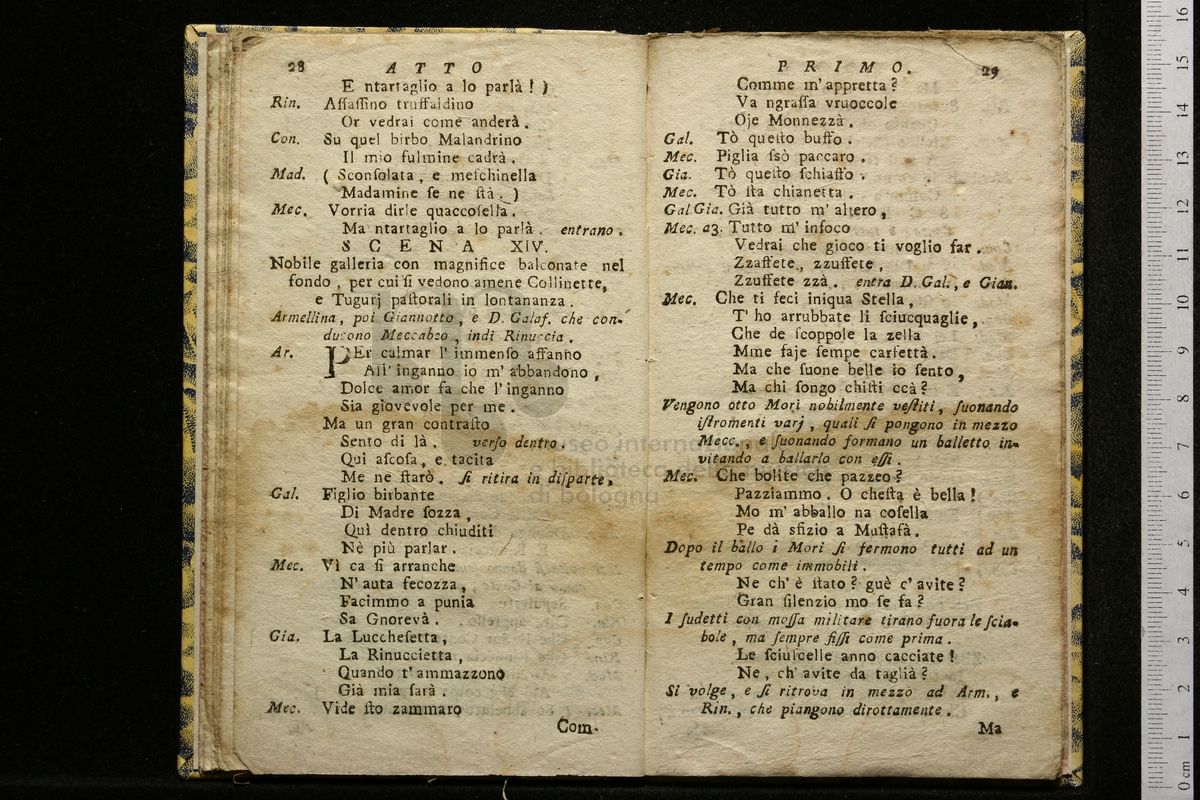 28 ATTO
E ntartaglio a lo parlà! )
Rin. Aſſaſſino truffaldino
Or vedrai come anderà.
Con. Su quel birbo Malandrino
Il mio fulmine cadrà.
Mad. ( Sconſolata, e meſchinella
Madamine ſe ne ſtà. )
Mec. Vorria dirle quaccoſella.
Ma ntartaglio a lo parlà. entrano.
SCENA XIV.
Nobile galleria con magnifice balconate nel
fondo, per cui ſi vedono amene Collinette,
e Tugurj paſtorali in lontananza.
Armellina, poi Giannotto, e D. Galaf. che con-
ducono Meccabeo, indi Rinuccia.
Ar. PEr calmar l' immenſo affanno
All' inganno io m' abbandono,
Dolce amor fa che l' inganno
Sia giovevole per me.
Ma un gran contraſto
Sento di là. verſo dentro.
Qui aſcoſa, e tacita
Me ne ſtarò. ſi ritira in diſparte,
Gal. Figlio birbante
Di Madre ſozza,
Quì dentro chiuditi
Nè più parlar.
Mec. Vì ca ſi arranche
N' auta fecozza,
Facimmo a punia
Sa Gnorevà.
Gia. La Luccheſetta,
La Rinuccietta,
Quando t' ammazzono
Già mia ſarà.
Mec. Vide ſto zammaro
Com-
PRIMO. 29
Comme m' appretta?
Va ngraſſa vruoccole
Oje Monnezzà.
Gal. Tò queſto buffo.
Mec. Piglia ſsò paccaro.
Gia. Tò queſto ſchiaffo.
Mec. Tò ſta chianetta.
Gal. Gia. Già tutto m' altero,
Mec. a3. Tutto m' infoco
Vedrai che gioco ti voglio far.
Zzaffete, zzuffete,
Zzuffete zzà. entra D. Gal., e Gian.
Mec. Che ti feci iniqua Stella,
T' ho arrubbate li ſciucquaglie,
Che de ſcoppole la zella
Mme faje ſempe carfettà.
Ma che ſuone belle io ſento,
Ma chi ſongo chiſti ccà?
Vengono otto Mori nobilmente veſtiti, ſuonando
iſtromenti varj, quali ſi pongono in mezzo
Mecc., e ſuonando formano un balletto in-
vitando a ballarlo con eſſi.
Mec. Che bolite che pazzeo?
Pazziammo. O cheſta è bella!
Mo m' abballo na coſella
Pe dà sfizio a Muſtafà.
Dopo il ballo i Mori ſi fermono tutti ad un
tempo come immobili.
Ne ch' è ſtato? guè c' avite?
Gran ſilenzio mo ſe fa?
I ſudetti con moſſa militare tirano fuora le ſcia-
bole, ma ſempre fiſſi come prima.
Le ſciuſcelle anno cacciate!
Ne, ch' avite da taglià?
Si volge, e ſi ritrova in mezzo ad Arm., e
Rin., che piangono dirottamente.
Ma